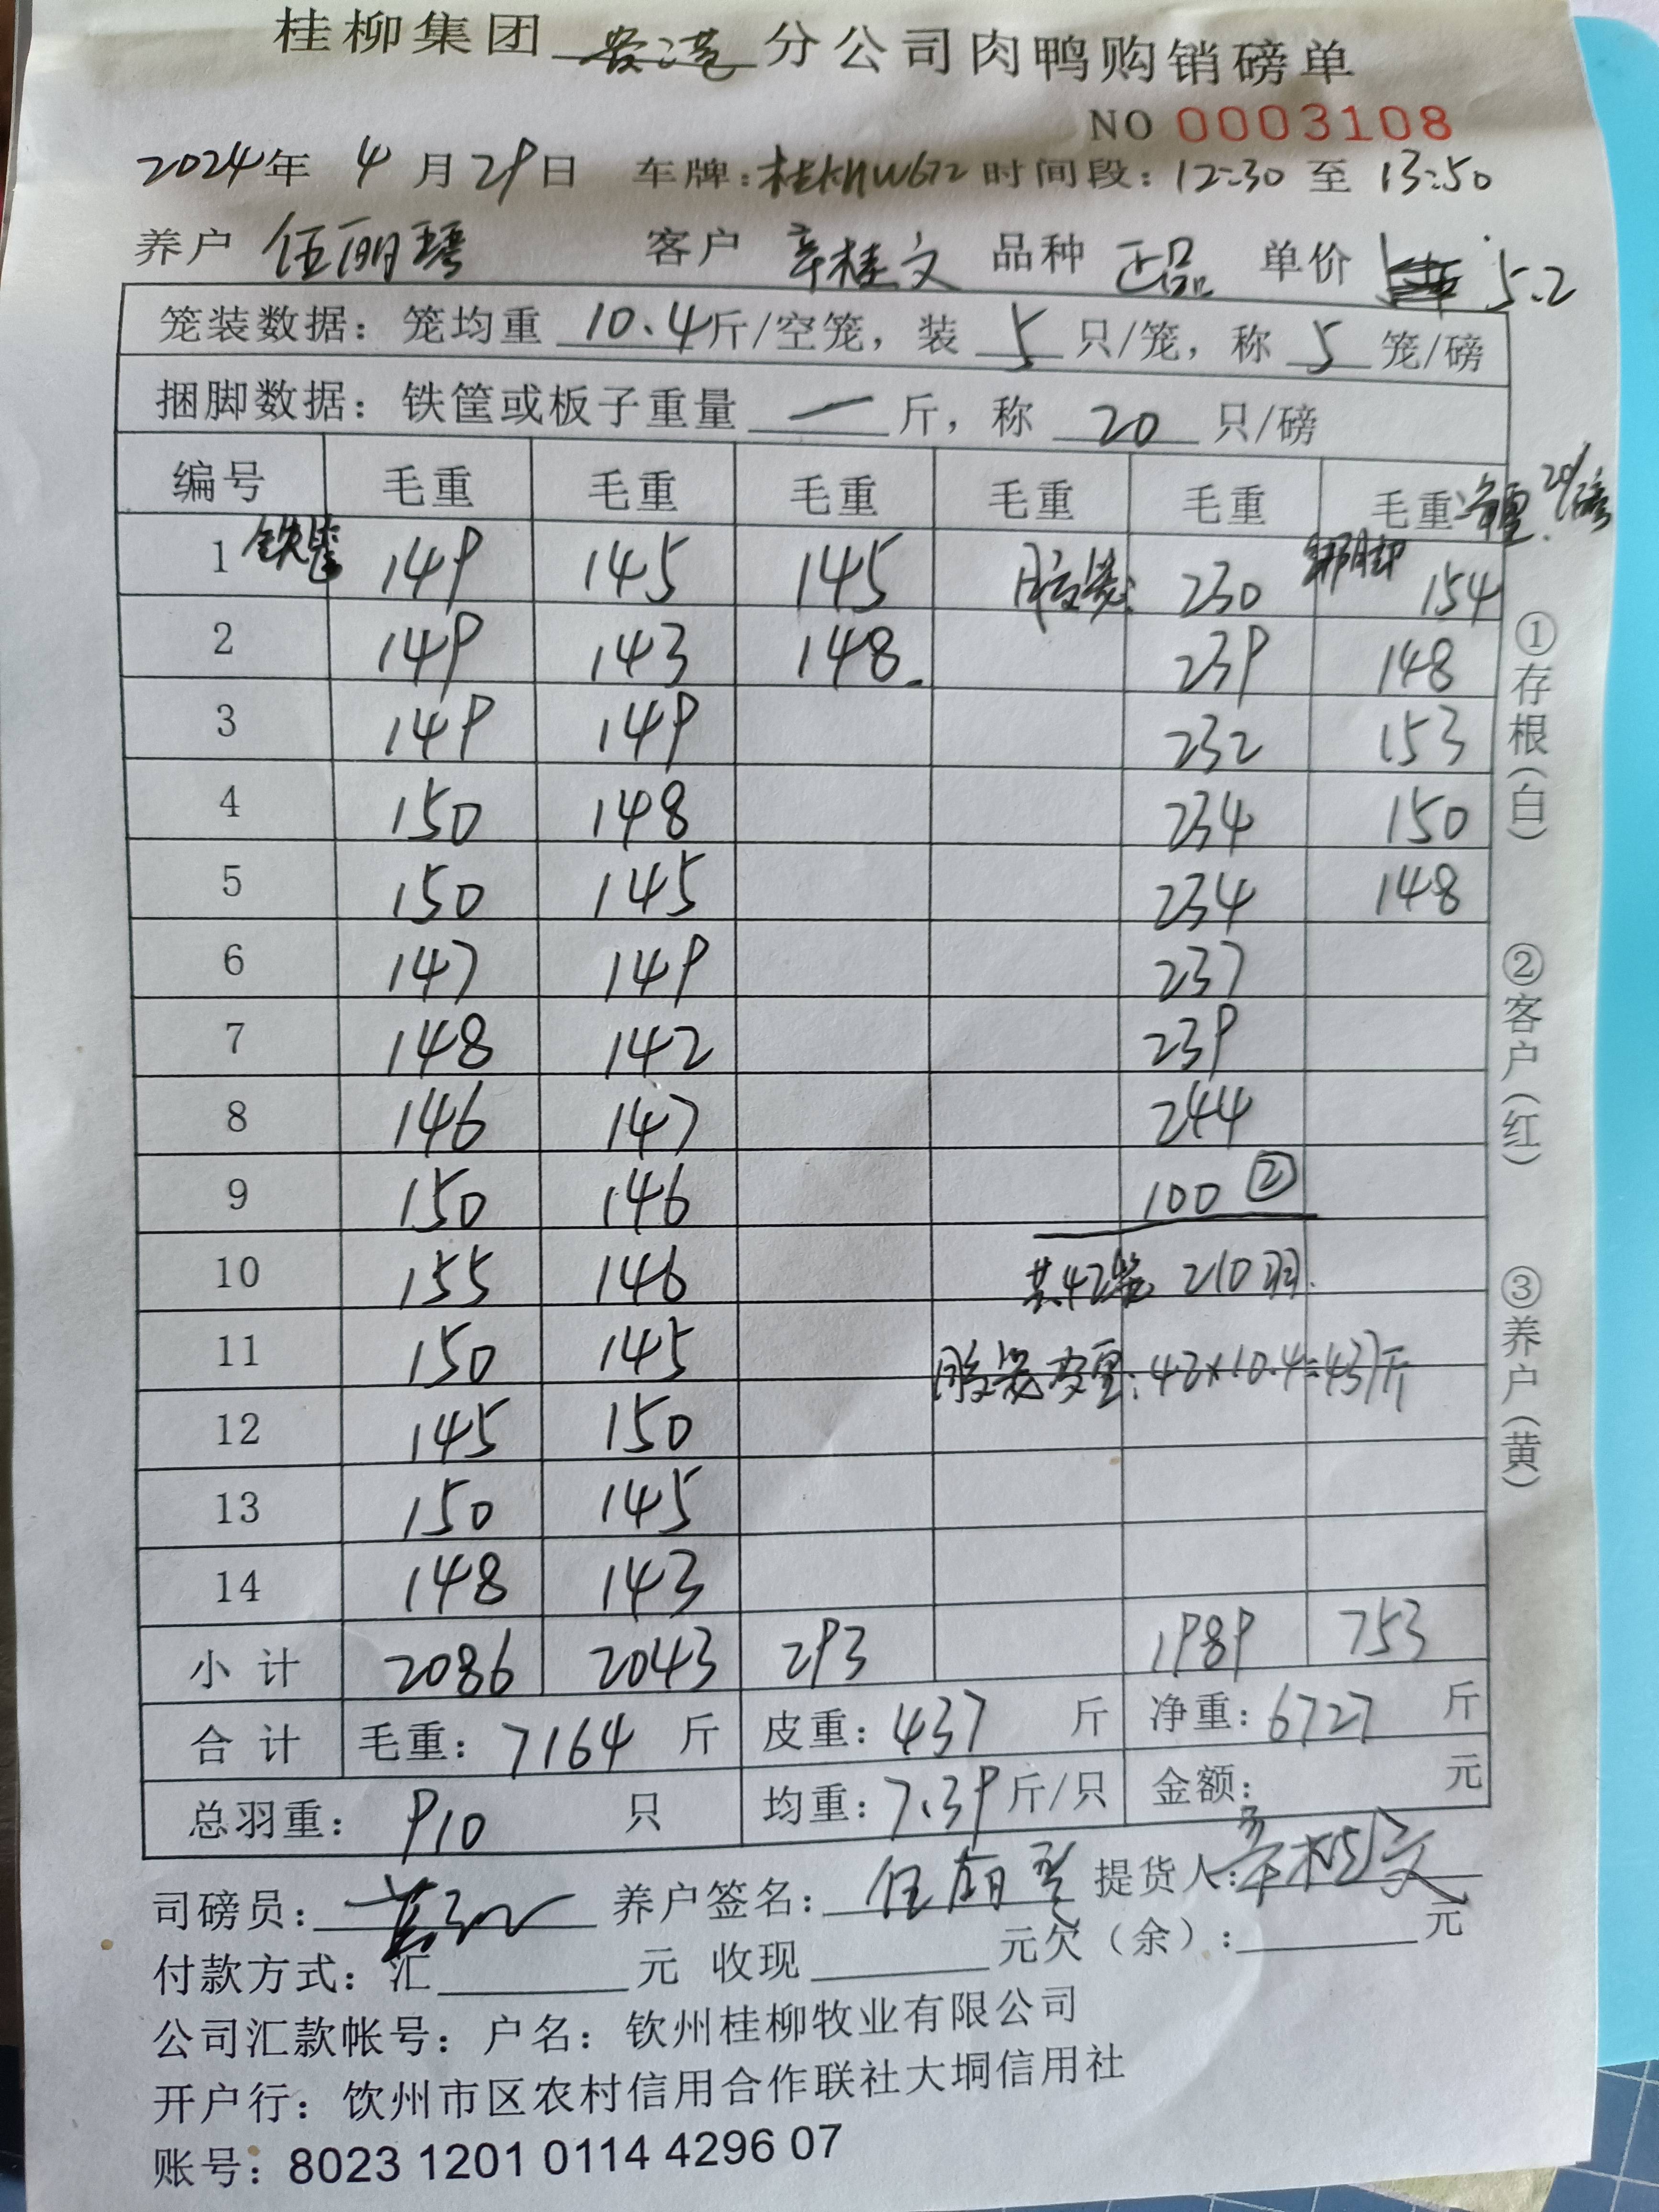 桂柳集团 贵港 分公司肉鸭购销磅单
NO 0003108
2024年 4月29日 车牌:桂KNW672 时间段:12:30 至 13:50
养户 伍丽 客户 辛桂文 品种 正品 单价 5.2
笼装数据: 笼均重 10.4斤/空笼, 装 5 只/笼, 称 5 笼/磅
捆脚数据: 铁筐或板子重量 一 斤, 称 20 只/磅
编号 毛重 毛重 毛重 毛重 毛重 毛重 20/磅
1 铁笼 149 145 145 胶笼: 230 绑脚 154
2 149 143 148 239 148
3 149 149 232 153
4 150 148 234 150
5 150 145 234 148
6 147 149 237
7 148 142 239
8 146 147 244
9 150 146 100 ②
10 155 146 共42笼 210羽.
11 150 145 胶笼皮重:42×10.4=437斤
12 145 150
13 150 145
14 148 143
小计 2086 2043 293 1989 753
合计 毛重: 7164 斤 皮重: 437 斤 净重: 6727 斤
总羽重: 910 只 均重: 7.39 斤/只 金额: 元
司磅员: 养户签名: 伍丽 提货人: 辛桂文
付款方式: 汇 元 收现 元欠(余): 元
公司汇款帐号: 户名: 钦州桂柳牧业有限公司
开户行: 钦州市区农村信用合作联社大垌信用社
账号: 8023 1201 0114 4296 07
①存根(白)
②客户(红)
③养户(黄)